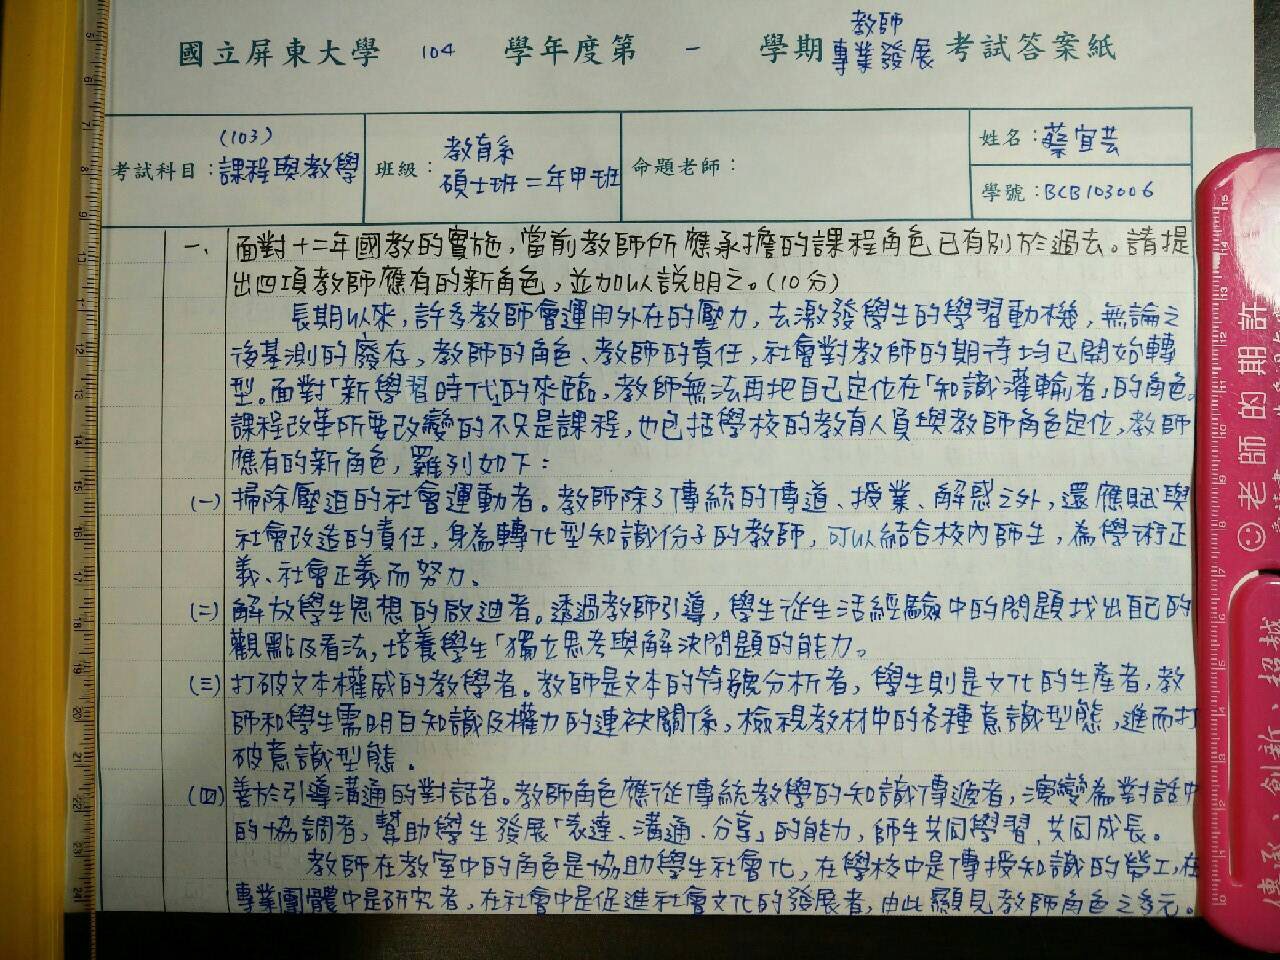 國立屏東大學 104 學年度第 一 學期 教師專業發展 考試答案紙
考試科目：(103) 課程與教學
班級：教育系 碩士班二年甲班
命題老師：
姓名：蔡宜芸
學號：BCB103006
一、面對十二年國教的實施，當前教師所應承擔的課程角色已有別於過去。請提
出四項教師應有的新角色，並加以說明之。(10分)
長期以來，許多教師會運用外在的壓力，去激發學生的學習動機，無論之
後基測的廢存，教師的角色、教師的責任，社會對教師的期待均已開始轉
型。面對「新學習時代」的來臨，教師無法再把自己定位在「知識灌輸者」的角色。
課程改革所要改變的不只是課程，也包括學校的教育人員與教師角色定位，教師
應有的新角色，羅列如下：
(一) 掃除壓迫的社會運動者。教師除了傳統的傳道、授業、解惑之外，還應賦與
社會改造的責任，身為轉化型知識份子的教師，可以結合校內師生，為學術正
義、社會正義而努力。
(二) 解放學生思想的啟迪者。透過教師引導，學生從生活經驗中的問題找出自己的
觀點及看法，培養學生「獨立思考與解決問題的能力。
(三) 打破文本權威的教學者。教師是文本的符號分析者，學生則是文化的生產者，教
師和學生需明白知識及權力的連袂關係，檢視教材中的各種意識型態，進而打
破意識型態。
(四) 善於引導溝通的對話者。教師角色應從傳統教學的知識傳遞者，演變為對話中
的協調者，幫助學生發展「表達、溝通、分享」的能力，師生共同學習，共同成長。
教師在教室中的角色是協助學生社會化，在學校中是傳授知識的勞工，在
專業團體中是研究者，在社會中是促進社會文化的發展者，由此顯見教師角色之多元。
老師的期許
傳承、創新、超越